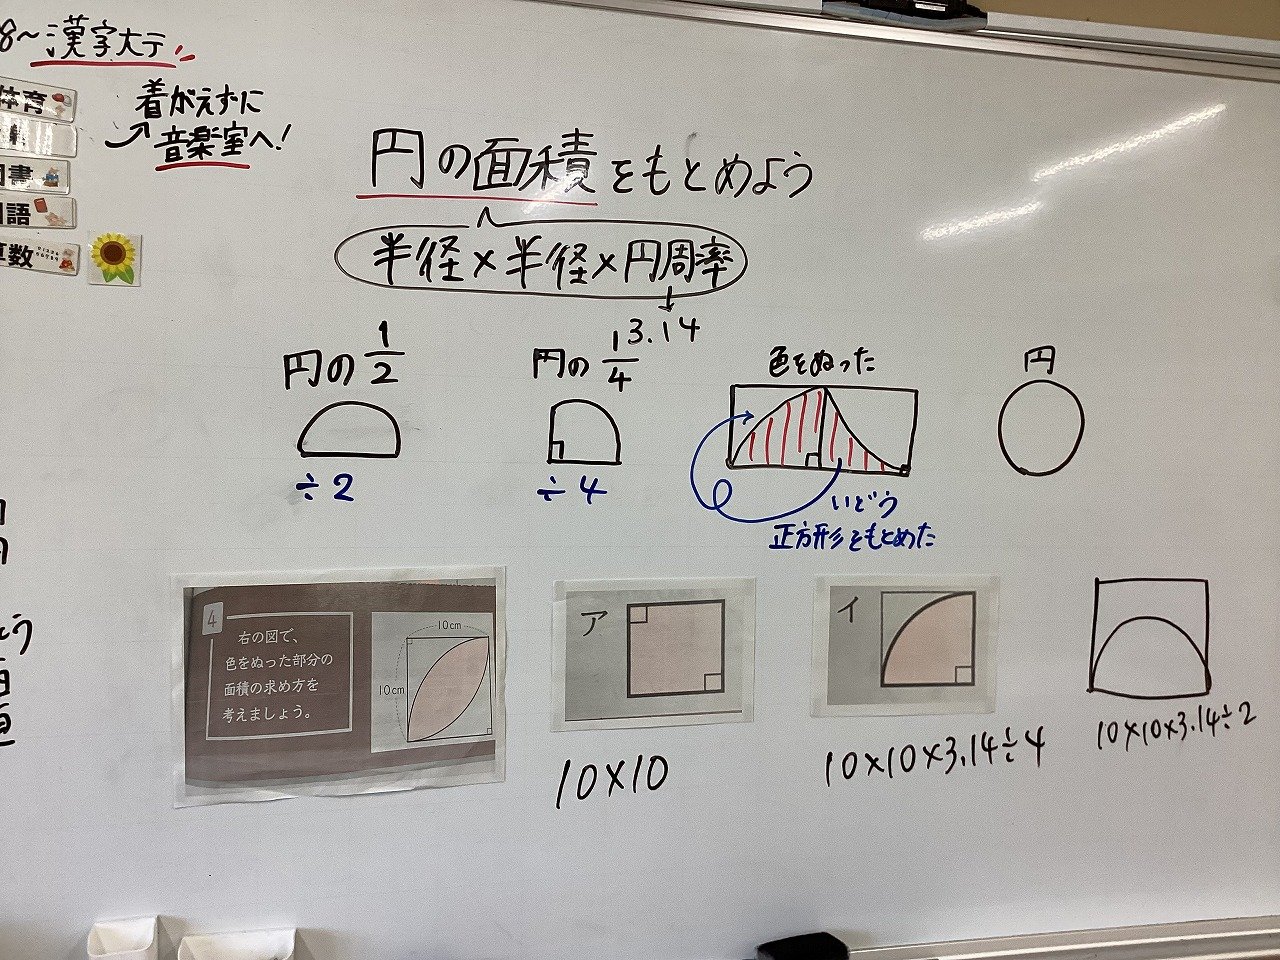 8〜漢字大テ
着がえずに
音楽室へ!
体育
図書
国語
算数
円の面積をもとめよう
半径×半径×円周率
3.14
円の1/2
÷2
円の1/4
÷4
色をぬった
いどう
正方形をもとめた
円
4
右の図で、
色をぬった部分の
面積の求め方を
考えましょう。
10cm
10cm
ア
10×10
イ
10×10×3.14÷4
10×10×3.14÷2